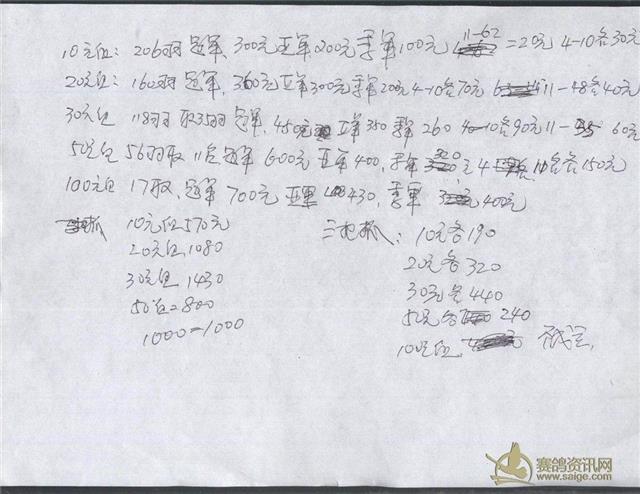 10元组: 206羽 冠军, 300元 亚军, 200元 季军 100元 11-62 =20元 4-10名30元
20元组: 160羽 冠军, 360元 亚军 300元 季军 20元 4-10名70元 11-48名40元
30元组 118羽 取35羽 冠军, 450元 亚军 350 季军 260 4-10名90元 11-35 60元
50元组 56羽取 11名 冠军 600元 亚军 400, 季军 320元 4 10名各150元
100元组 17取, 冠军 700元 亚军 430, 季军 400元
抓 10元组570元
20元组1080
30元组1430
50组=800
1000=1000
三把抓: 10元各190
20元各320
30元各440
50元各 240
100元组
赛鸽资讯网
www.saige.com